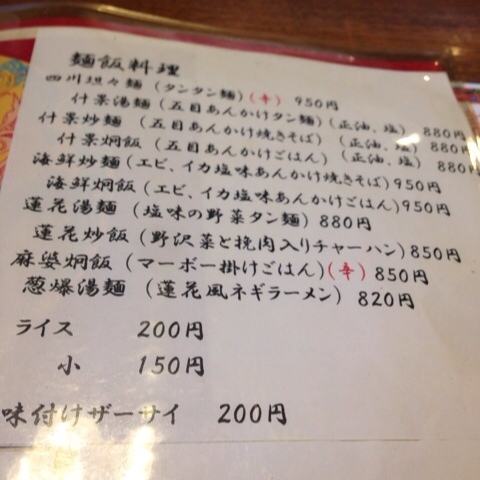 麺飯料理
四川坦々麺（タンタン麺）（辛） 950円
什景湯麺（五目あんかけタン麺）（正油、塩） 880円
什景炒麺（五目あんかけ焼きそば）（正油、塩） 880円
什景焖飯（五目あんかけごはん）（正油、塩） 880円
海鮮炒麺（エビ、イカ塩味あんかけ焼きそば）950円
海鮮焖飯（エビ、イカ塩味あんかけごはん）950円
蓮花湯麺（塩味の野菜タン麺）880円
蓮花炒飯（野沢菜と挽肉入りチャーハン）850円
麻婆焖飯（マーボー掛けごはん）（辛）850円
葱爆湯麺（蓮花風ネギラーメン） 820円
ライス 200円
小 150円
味付けザーサイ 200円